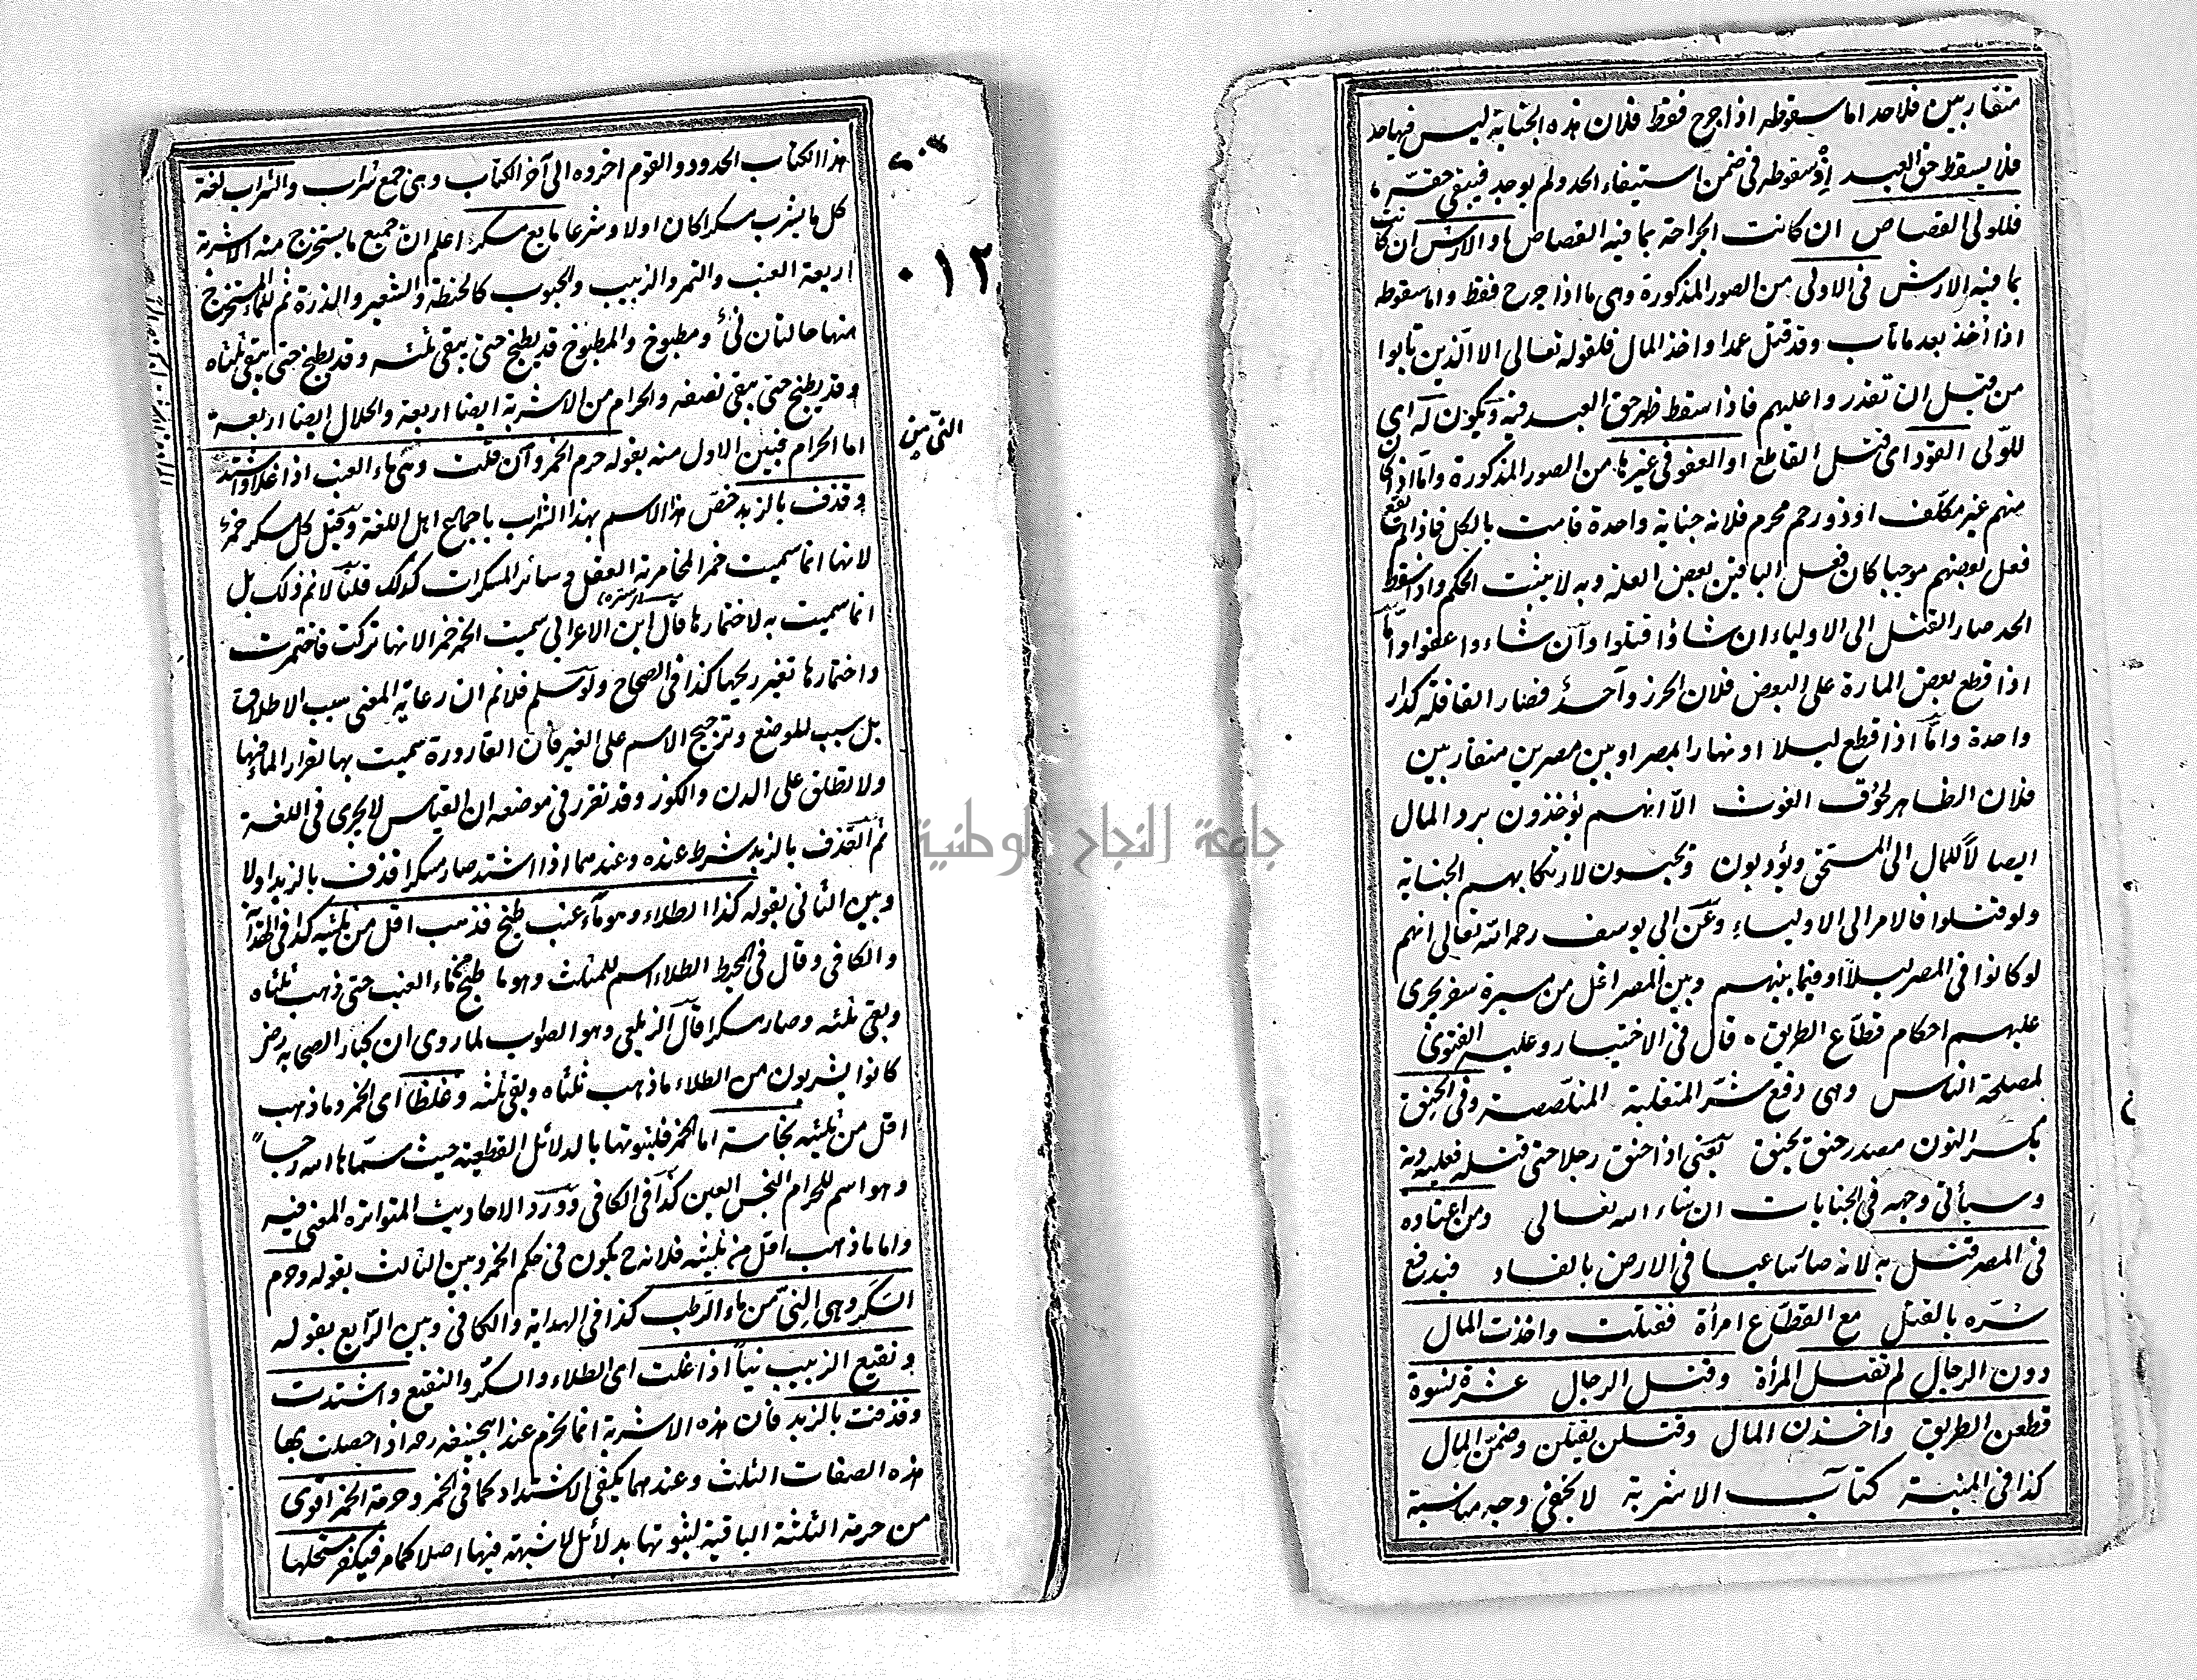 متقاربين فلا حد اما سقوطه اذا جرح فقط فلان هذه الجناية ليس فيها حد
فلا يسقط حق العبد اذ سقوطه في ضمن استيفاء الحد ولم يوجد فيبقى حقه
فللولى القصاص ان كانت الجراحة مما فيه القصاص والارش ان كانت
مما فيه الارش في الاولى من الصور المذكورة وهي ما اذا جرح فقط واما سقوطه
اذا أخذ بعد ما تاب وقد قتل عمدا واخذ المال فلقوله تعالى الا الذين تابوا
من قبل ان تقدروا عليهم فاذا سقط ظهر حق العبد فيه ويكون له اي
للولى القود اى قتل القاطع او العفو في غيرها من الصور المذكورة واما اذا كان
منهم غير مكلف او ذو رحم محرم فلانه جناية واحدة قامت بالكل فاذا لم يقع
فعل بعضهم موجبا كان فعل الباقين بعض العلة وبه لا يثبت الحكم واذا سقط
الحد صار القتل الى الاولياء ان شاؤا قتلوا وان شاءوا عفوا واما
اذا قطع بعض المارة على البعض فلان الحرز واحد فصار القافلة كدار
واحدة واما اذا قطع ليلا او نهارا بمصر او بين مصرين متقاربين
فلان الظاهر لحوق الغوث الا انهم يؤخذون برد المال
ايصالا للمال الى المستحق ويؤدبون ويحبسون لارتكابهم الجناية
ولو قتلوا فالامر الى الاولياء وعن ابى يوسف رحمه الله تعالى انهم
لو كانوا في المصر ليلا او فيما بينهم وبين المصر اقل من مسيرة سفر يجرى
عليهم احكام قطاع الطريق قال في الاختيار وعليه الفتوى
لمصلحة الناس وهى دفع شر المتغلبة المتلصصة وفى الخنق
بكسر النون مصدر خنق يخنق يعنى اذا خنق رجلا حتى قتله فعليه دية
وسيأتى وجهه في الجنايات ان شاء الله تعالى ومن اعتاده
في المصر قتل به لانه صار ساعيا في الارض بالفساد فيدفع
شره بالقتل مع القطاع امرأة فقتلت واخذت المال
دون الرجال لم تقتل المرأة وقتل الرجال عشرة نسوة
قطعن الطريق واخذن المال وقتلن يقتلن وضمن المال
كذا في المنية كتاب الاشربة لا يخفى وجه مناسبة
هذا الكتاب الحدود والقوم اخروه الى آخر الكتاب وهى جمع شراب والشراب لغة
كل ما يشرب مسكرا كان اولا وشرعا مايع مسكر اعلم ان جميع ما يستخرج منه الاشربة
اربعة العنب والتمر والزبيب والحبوب كالحنطة والشعير والذرة ثم للماء المستخرج
منها حالتان نئ ومطبوخ والمطبوخ قد يطبخ حتى يبقى ثلثه وقد يطبخ حتى يبقى ثلثاه
وقد يطبخ حتى يبقى نصفه والحرام من الاشربة ايضا اربعة والحلال ايضا اربعة
اما الحرام فبين الاول منه بقوله حرم الخمر وان قلت وهى ماء العنب اذا غلا واشتد
وقذف بالزبد خص هذا الاسم بهذا الشراب باجماع اهل اللغة وقيل كل مسكر خمر
لانها انما سميت خمرا لمخامرته العقل وسائر المسكرات كذلك قلنا لا نم ذلك بل
انما سميت به لاختمارها قال ابن الاعرابى سميت الخمر خمرا لانها تركت فاختمرت
واختمارها تغير ريحها كذا في الصحاح ولو سلم فلا نم ان رعاية المعنى سبب الاطلاق
بل سبب للوضع وترجيح الاسم على الغير فان القارورة سميت بها لقرار الماء فيها
ولا تطلق على الدن والكوز وقد تقرر في موضعه ان القياس لا يجرى في اللغة
ثم القذف بالزبد شرط عنده وعندهما اذا اشتد صار مسكرا قذف بالزبد اولا
وبين الثانى بقوله كذا الطلاء وهو ماء عنب طبخ فذهب اقل من ثلثيه كذا في الهداية
والكافى وقال في المحيط الطلاء اسم للمثلث وهو ما طبخ من ماء العنب حتى ذهب ثلثاه
وبقى ثلثه وصار مسكرا قال الزيلعى وهو الصواب لما روى ان كبار الصحابة رض
كانوا يشربون من الطلاء ما ذهب ثلثاه وبقى ثلثه وغلظا اى الخمر وما ذهب
اقل من ثلثيه نجاسة اما الخمر فلثبوتها بالدلائل القطعية حيث سماها الله رجسا
وهو اسم للحرام النجس العين كذا في الكافى وورد الاحاديث المتواترة المعنى فيه
واما ما ذهب اقل من ثلثيه فلانه ح يكون في حكم الخمر وبين الثالث بقوله وحرم
السكر وهى النئ من ماء الرطب كذا في الهداية والكافى وبين الرابع بقوله
ونقيع الزبيب نيأ اذا غلت اى الطلاء والسكر والنقيع واشتدت
وقذفت بالزبد فان هذه الاشربة انما تحرم عند ابيحنيفه رحه اذا حصلت بها
هذه الصفات الثلث وعندهما يكفى الاشتداد كما في الخمر وحرمة الخمر اقوى
من حرمة الثلثة الباقية لثبوتها بدلائل لا شبهة فيها اصلا كما مر فيكفر مستحلها
٠١٢
جامعة النجاح الوطنية